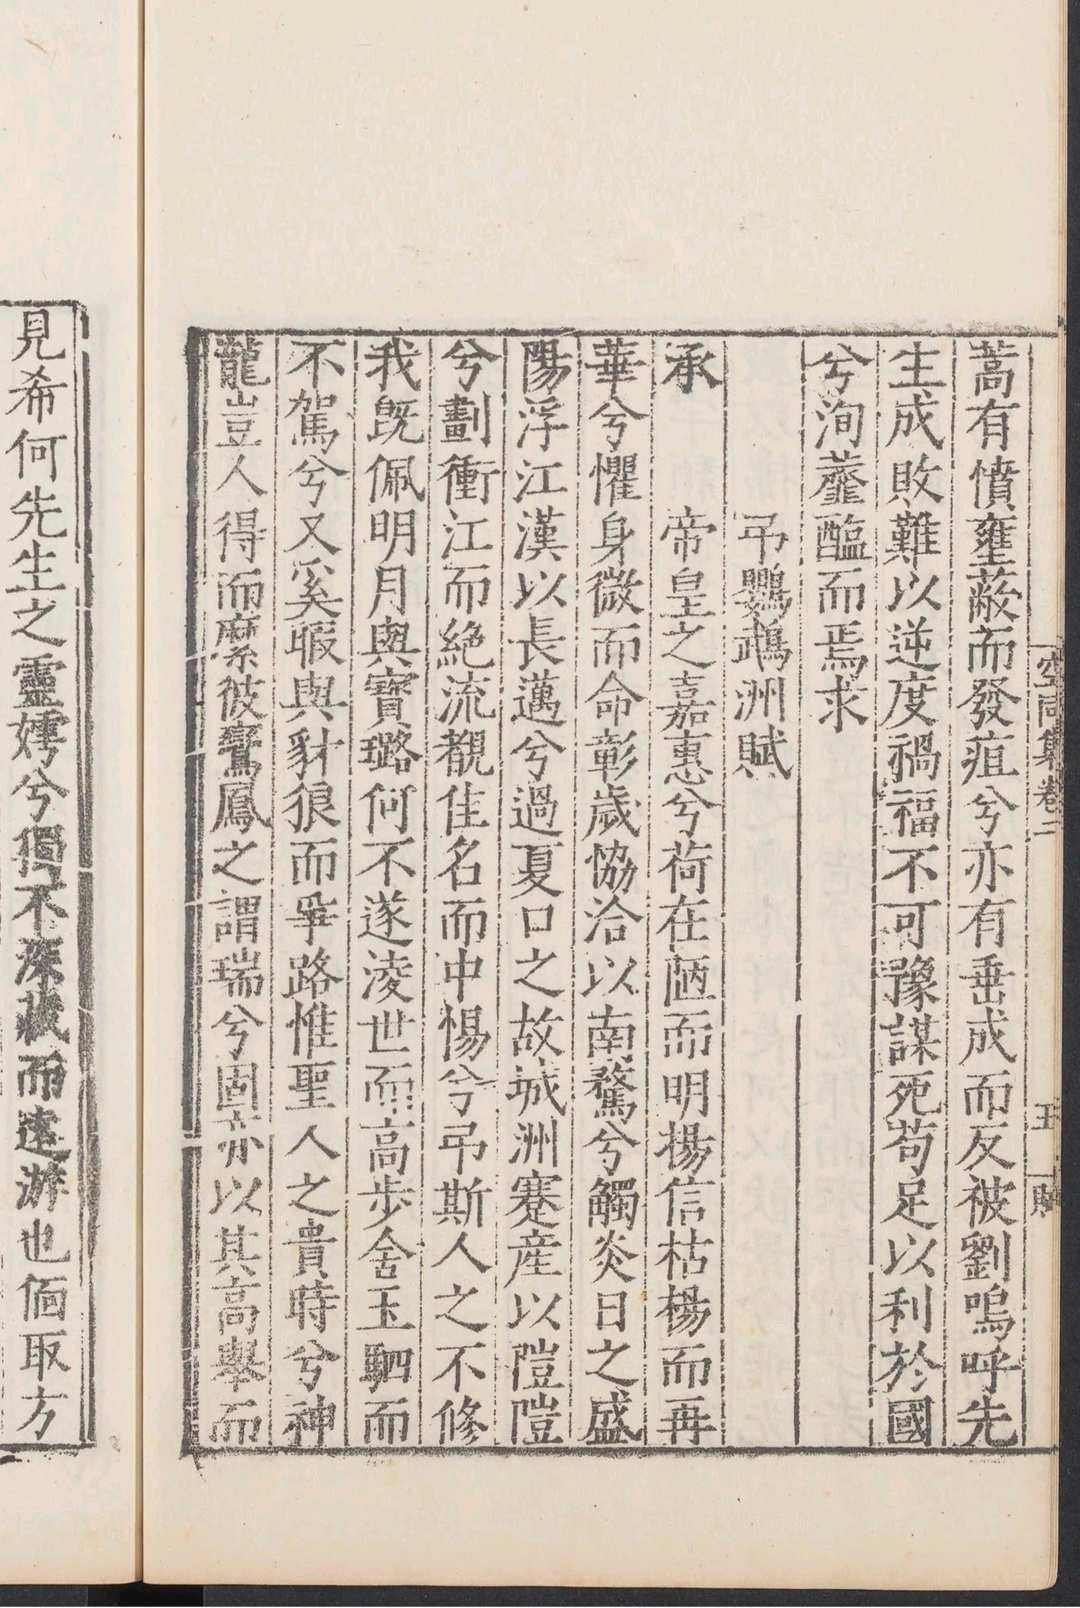 空同集卷二
五
賦
蒿有憤壅蔽而發疽兮亦有垂成而反被劉嗚呼先
生成敗難以逆度禍福不可豫謀死苟足以利於國
兮洵虀醢而焉求
弔鸚鵡洲賦
承 帝皇之嘉惠兮荷在陋而明揚信枯楊而再
華兮懼身微而命彰歲協洽以南騖兮觸炎日之盛
陽浮江漢以長邁兮過夏口之故城洲蹇産以隑隑
兮劃衝江而絶流覩佳名而中惕兮弔斯人之不修
我旣佩明月與寶璐何不遂淩世而高步舍玉駟而
不駕兮又奚暇與豺狼而爭路惟聖人之貴時兮神
龍豈人得而縻彼鸞鳳之謂瑞兮固亦以其高舉而
見希何先生之靈婞兮獨不深藏而遠游也偭取方